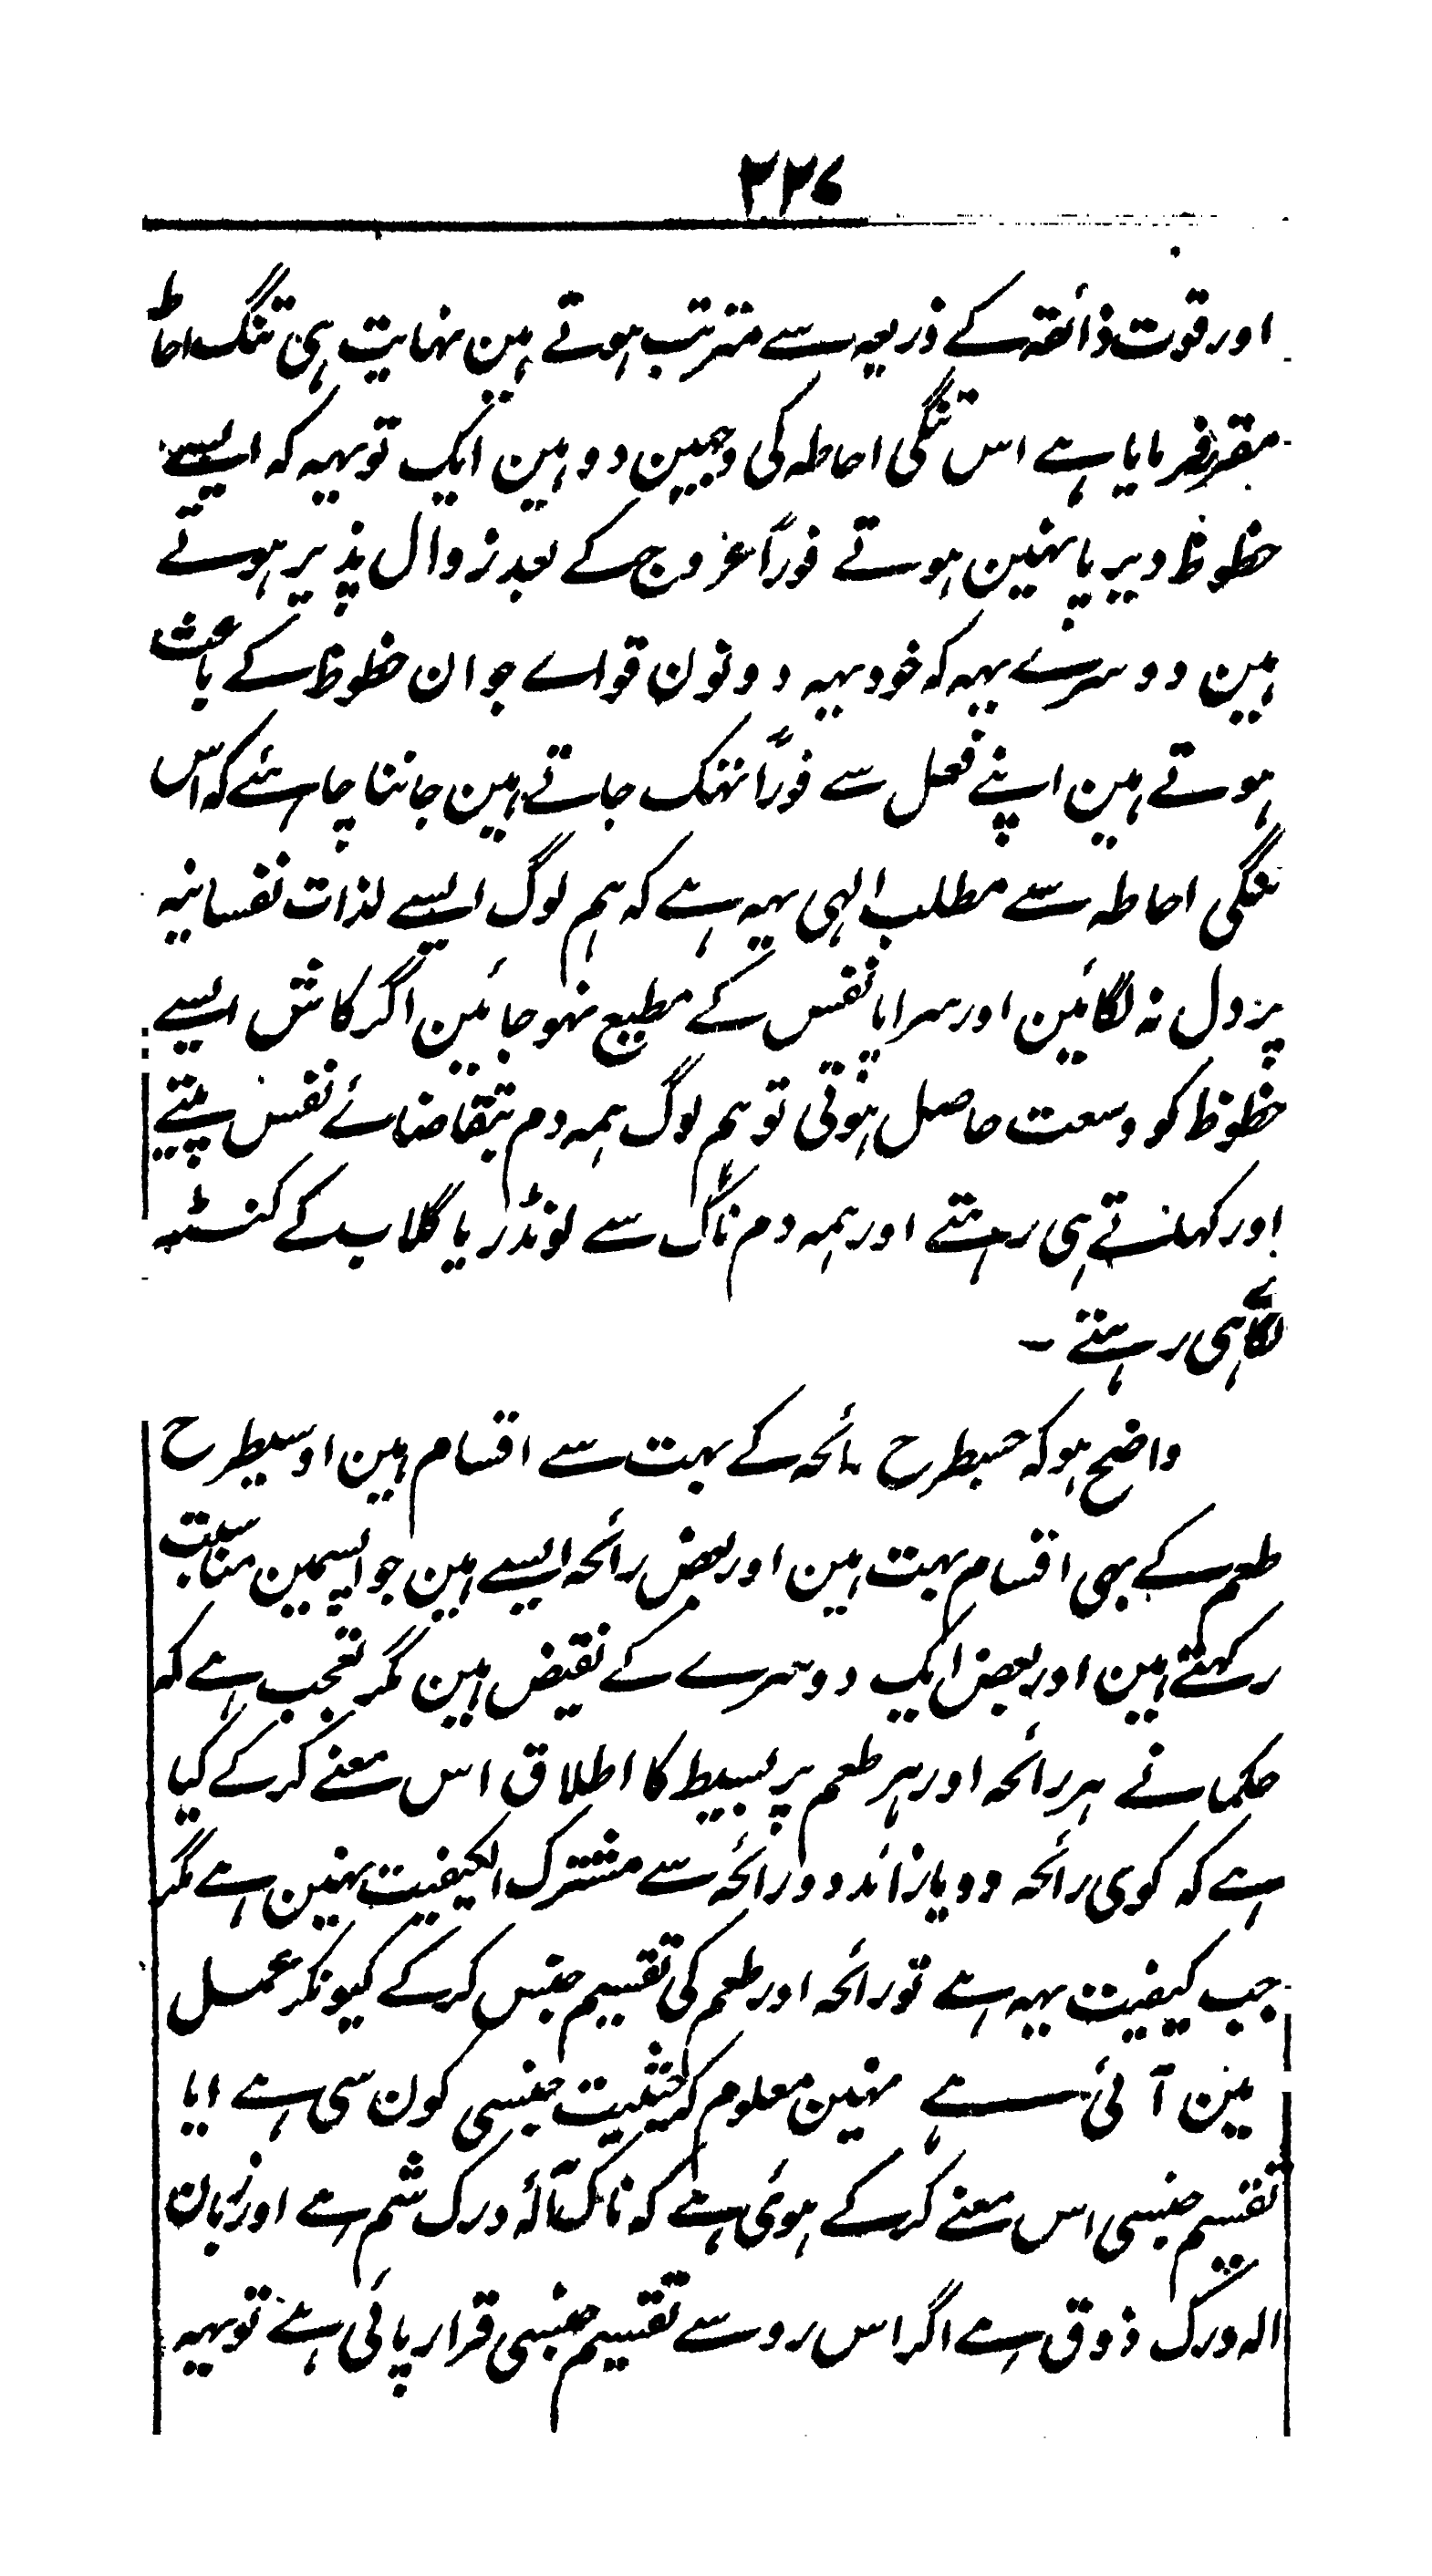 ۲۲۷
اور قوت ذائقہ کے ذریعہ سے مترتب ہوتے ہین نہایت ہی تنگ احاطہ
مقرر فرمایا ہے اس تنگی احاطہ کی وجہین دو ہین ایک تو یہہ کہ ایسے
حظوظ دیر پا نہین ہوتے فوراً عروج کے بعد زوال پذیر ہوتے
ہین دوسرے یہہ کہ خود یہہ دونون قواے جو ان حظوظ کے باعث
ہوتے ہین اپنے فعل سے فوراً تہک جاتے ہین جاننا چاہئے کہ اس
تنگی احاطہ سے مطلب الہی یہہ ہے کہ ہم لوگ ایسے لذات نفسانیہ
پر دل نہ لگائین اور سراپا نفس کے مطیع نہو جائین اگر کاش ایسے
حظوظ کو وسعت حاصل ہوتی تو ہم لوگ ہمہ دم بتقاضائے نفس پیتے
اور کہاتے ہی رہتے اور ہمہ دم ناک سے لونڈر یا گلاب کے کنٹہ
لگائے ہی رہتے ۔
واضح ہو کہ جسطرح رائحہ کے بہت سے اقسام ہین اوسیطرح
طعم کے بہی اقسام بہت ہین اور بعض رائحہ ایسے ہین جو اپسمین مناسبت
رکہتے ہین اور بعض ایک دوسرے کے نقیض ہین مگر تعجب ہے کہ
حکما نے ہر رائحہ اور ہر طعم پر بسیط کا اطلاق اس معنے کرکے کیا
ہے کہ کوی رائحہ دو یا زائد دو رائحہ سے مشترک الکیفیت نہین ہے مگر
جب کیفیت یہہ ہے تو رائحہ اور طعم کی تقسیم جنس کرکے کیونکر عمل
مین آئی ہے نہین معلوم کہ حیثیت جنسی کون سی ہے ایا
تقسیم جنسی اس معنے کرکے ہوئی ہے کہ ناک آلہ درک شم ہے اور زبان
الہ درک ذوق ہے اگر اس رو سے تقسیم جنسی قرار پائی ہے تو یہہ